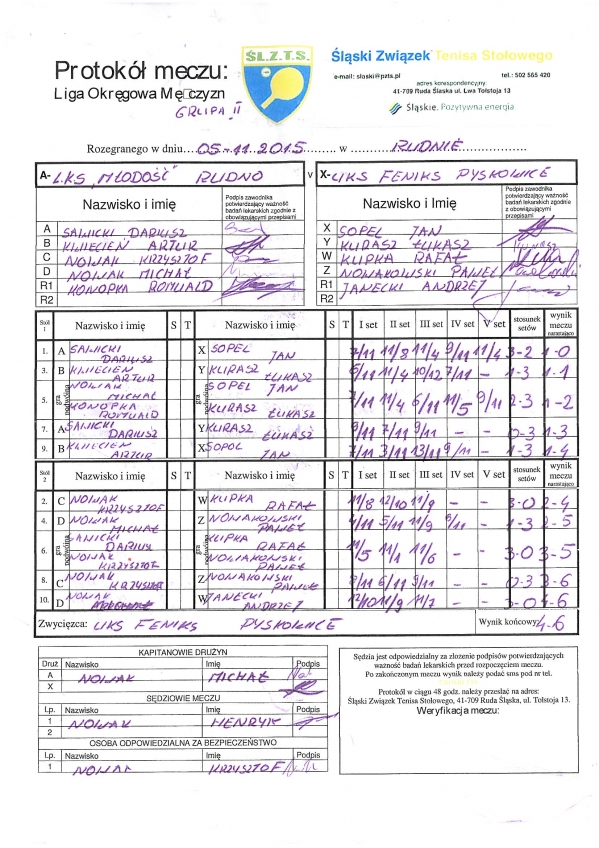 ŚL.Z.T.S.
Śląski Związek Tenisa Stołowego
e-mail: slaski@pzts.pl tel.: 502 565 420
adres korespondencyjny
41-709 Ruda Śląska ul. Lwa Tołstoja 13
Śląskie. Pozytywna energia
Protokół meczu:
Liga Okręgowa Mę□czyzn
GRUPA II
Rozegranego w dniu 05-11-2015 w RUDNIE
A- LKS „MŁODOŚĆ" RUDNO v X- UKS FENIKS PYSKOWICE
Nazwisko i Imię Podpis zawodnika potwierdzający ważność badań lekarskich zgodnie z obowiązującymi przepisami Nazwisko i Imię Podpis zawodnika potwierdzający ważność badań lekarskich zgodnie z obowiązującymi przepisami
A SAWICKI DARIUSZ X SOPEL JAN
B KWIECIEŃ ARTUR Y KURASZ ŁUKASZ
C NOWAK KRZYSZTOF W KUPKA RAFAŁ
D NOWAK MICHAŁ Z NOWAKOWSKI PAWEŁ
R1 KONOPKA ROMUALD R1 JANECKI ANDRZEJ
R2 R2
Stół 1 Nazwisko i imię S T Nazwisko i imię S T I set II set III set IV set V set stosunek setów wynik meczu narastająco
1. A SAWICKI DARIUSZ X SOPEL JAN 7/11 11/8 11/4 9/11 11/4 3-2 1-0
3. B KWIECIEŃ ARTUR Y KURASZ ŁUKASZ 6/11 11/4 10/12 7/11 - 1-3 1-1
5. gra podwójna NOWAK MICHAŁ KONOPKA ROMUALD gra podwójna SOPEL JAN KURASZ ŁUKASZ 7/11 11/4 6/11 11/5 9/11 2-3 1-2
7. A SAWICKI DARIUSZ Y KURASZ ŁUKASZ 9/11 7/11 9/11 - 0-3 1-3
9. B KWIECIEŃ ARTUR X SOPOL JAN 7/11 3/11 13/11 9/11 - 1-3 1-4
Stół 2 Nazwisko i imię S T Nazwisko i imię S T I set II set III set IV set V set stosunek setów wynik meczu narastająco
2. C NOWAK KRZYSZTOF W KUPKA RAFAŁ 11/8 12/10 11/9 - - 3-0 2-4
4. D NOWAK MICHAŁ Z NOWAKOWSKI PAWEŁ 4/11 5/11 11/9 6/11 - 1-3 2-5
6. gra podwójna SAWICKI DARIUSZ NOWAK KRZYSZTOF gra podwójna KUPKA RAFAŁ NOWAKOWSKI PAWEŁ 11/5 11/1 11/6 - - 3-0 3-5
8. C NOWAK KRZYSZTOF Z NOWAKOWSKI PAWEŁ 8/11 6/11 9/11 - - 0-3 3-6
10. D NOWAK W JANECKI ANDRZEJ 12/10 11/9 11/7 - - 3-0 4-6
Zwycięzca: UKS FENIKS PYSKOWICE Wynik końcowy 4-6
KAPITANOWIE DRUŻYN
Druż Nazwisko Imię Podpis
A NOWAK MICHAŁ
X
SĘDZIOWIE MECZU
Lp. Nazwisko Imię Podpis
1 NOWAK HENRYK
2
OSOBA ODPOWIEDZIALNA ZA BEZPIECZEŃSTWO
Lp. Nazwisko Imię Podpis
1 NOWAK KRZYSZTOF
Sędzia jest odpowiedzialny za złożenie podpisów potwierdzających
ważność badań lekarskich przed rozpoczęciem meczu.
Po zakończonym meczu wynik należy podać sms pod nr tel.
Protokół w ciągu 48 godz. należy przesłać na adres:
Śląski Związek Tenisa Stołowego, 41-709 Ruda Śląska, ul. Tołstoja 13.
Weryfikacja meczu: